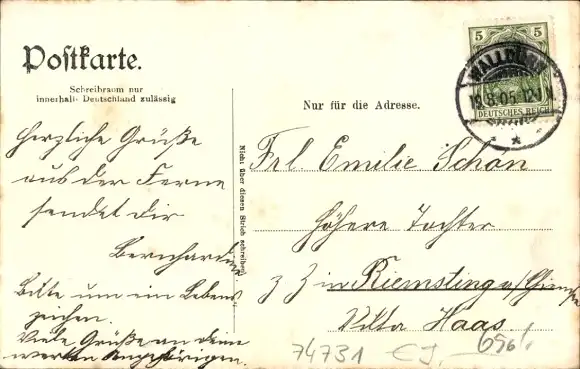 Postkarte.
Schreibraum nur
innerhalb Deutschland zulässig
5 5
WALLDÜRN
19.8.05. 12
DEUTSCHES REICH
Nur für die Adresse.
Herzliche Grüße
aus der Ferne
sendet dir
Bernhardine
Bitte um ein Lebens
zeichen.
Viele Grüße an deine
werten Angehörigen.
Nicht über diesen Strich schreiben!
Frl. Emilie Schan
Höhere Tochter
z. Z in Riemsting a/Chiemsee
Villa Haas
74731